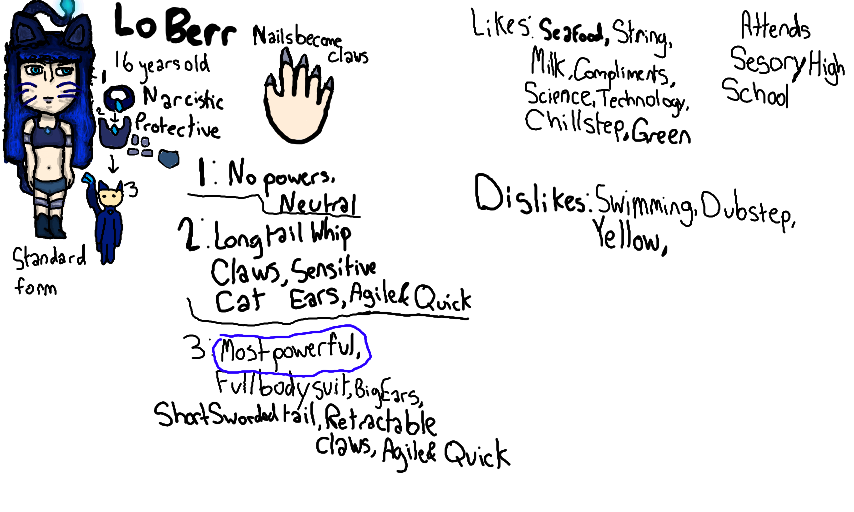 Lo Berr
16 years old
Narcistic
Protective
1
2
3
Standard
form
Nails become
claws
1: No powers,
Neutral
2: Long tail Whip
Claws, Sensitive
Cat Ears, Agile & Quick
3: Most powerful,
Full body suit, Big Ears,
Short Sworded tail, Retractable
claws, Agile & Quick
Likes: Seafood, String,
Milk, Compliments,
Science, Technology,
Chillstep, Green
Attends
Sesory High
School
Dislikes: Swimming, Dubstep,
Yellow,